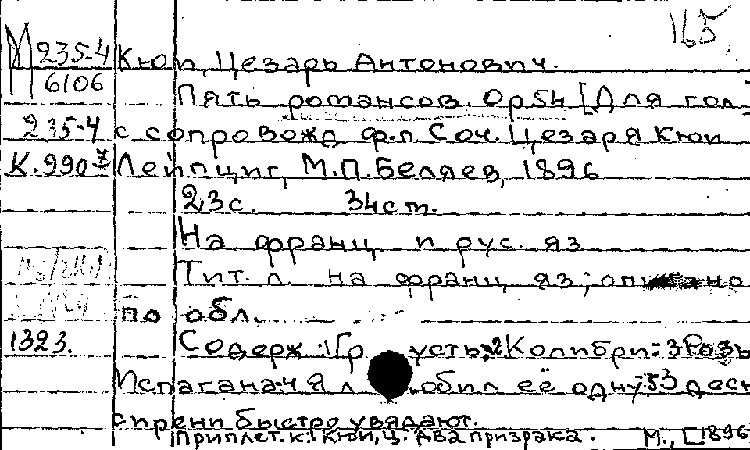 165
М 235-4 Кюи, Цезарь Антонович.
6106 Пять романсов. Op 54 [Для гол.
235-4 с сопровожд ф.п. Соч. Цезаря Кюи
К.990 Лейпциг, М.П.Беляев, 1896
23с. 34ст.
На франц и рус. яз
Тит. л. на франц. яз; описано
по обл.
1323. Содерж: 1Гр усть; 2Колибри: 3Розы
Испагана: 4Я л юбил её одну: 5Здесь
сирени быстро увядают.
Приплет. к: Кюи, Ц. Два призрака. М., [1896